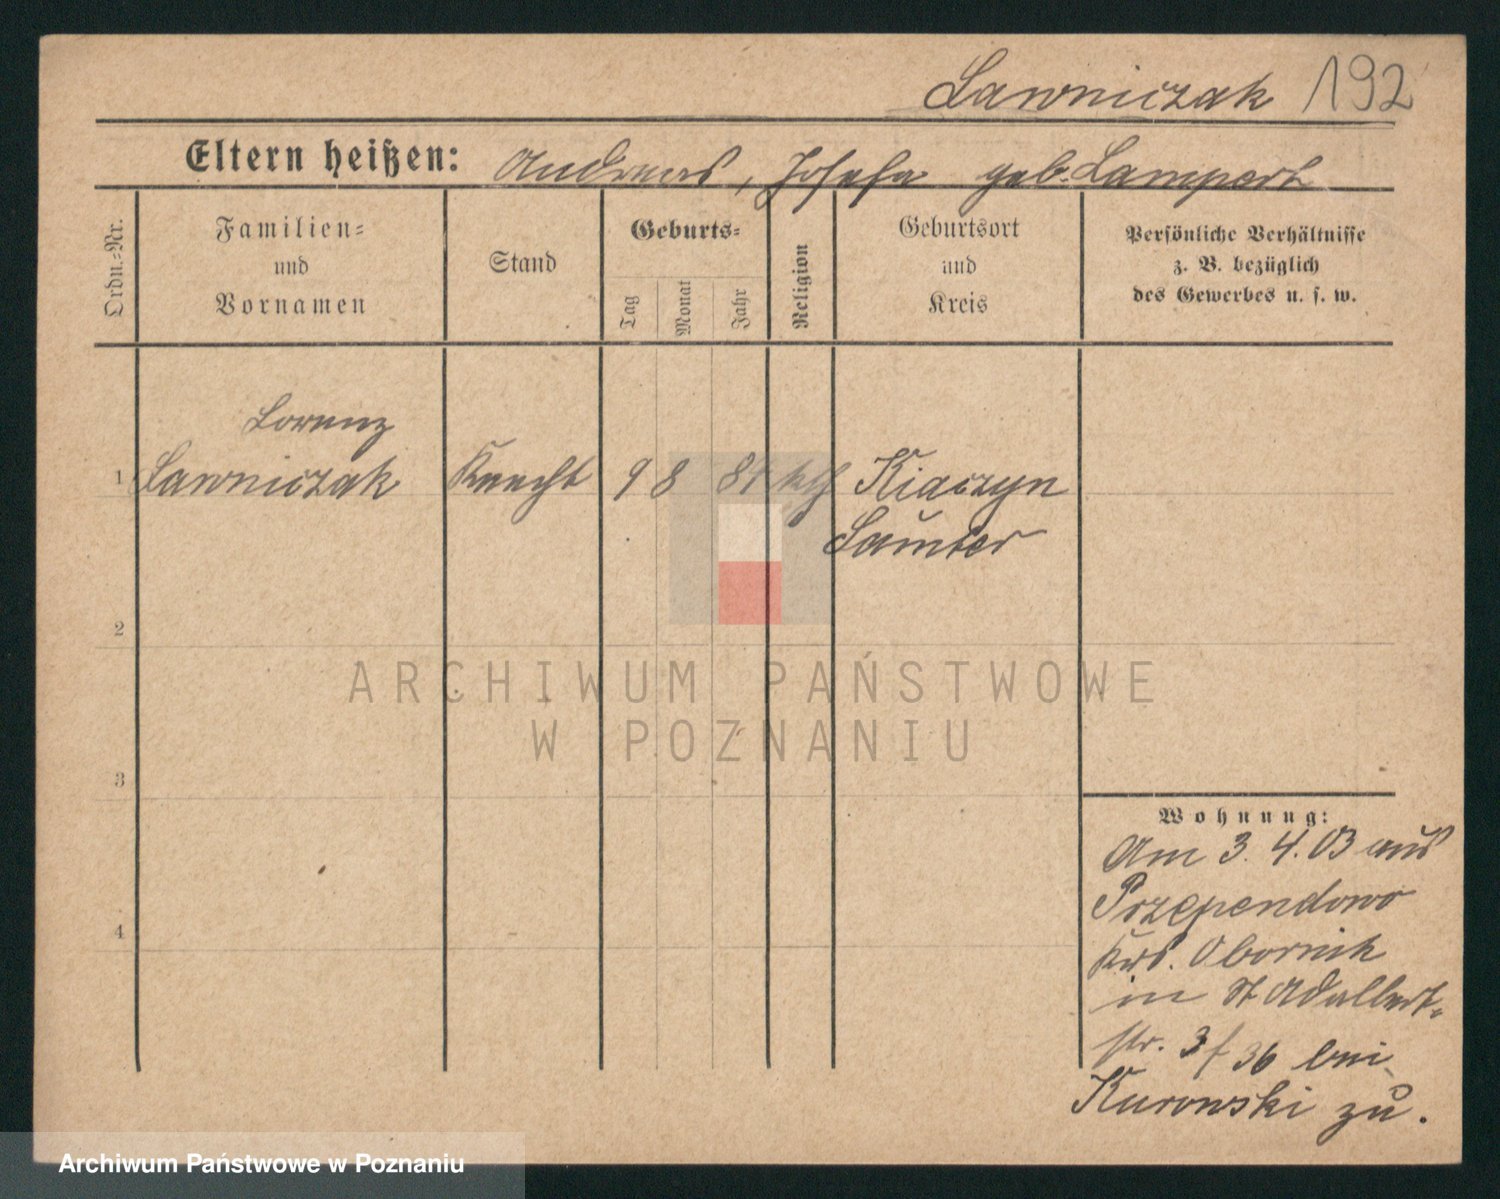 Lawniczak 192
Eltern heißen: Andreas, Josefa geb. Lampert
Ordn.-Nr.
Familien-
und
Vornamen
Stand
Geburts-
Tag
Monat
Jahr
Religion
Geburtsort
und
Kreis
Persönliche Verhältnisse
z. B. bezüglich
des Gewerbes u. s. w.
Lorenz
1 Lawniczak Knecht 9 8 84 kth Kiaczyn
Samter
2
3
4
Wohnung:
Am 3. 4. 03 aus
Przependowo
Krs. Obornik
in St Adalbert-
str. 3/36 bei
Kurowski zu.
ARCHIWUM PAŃSTWOWE
W POZNANIU
Archiwum Państwowe w Poznaniu